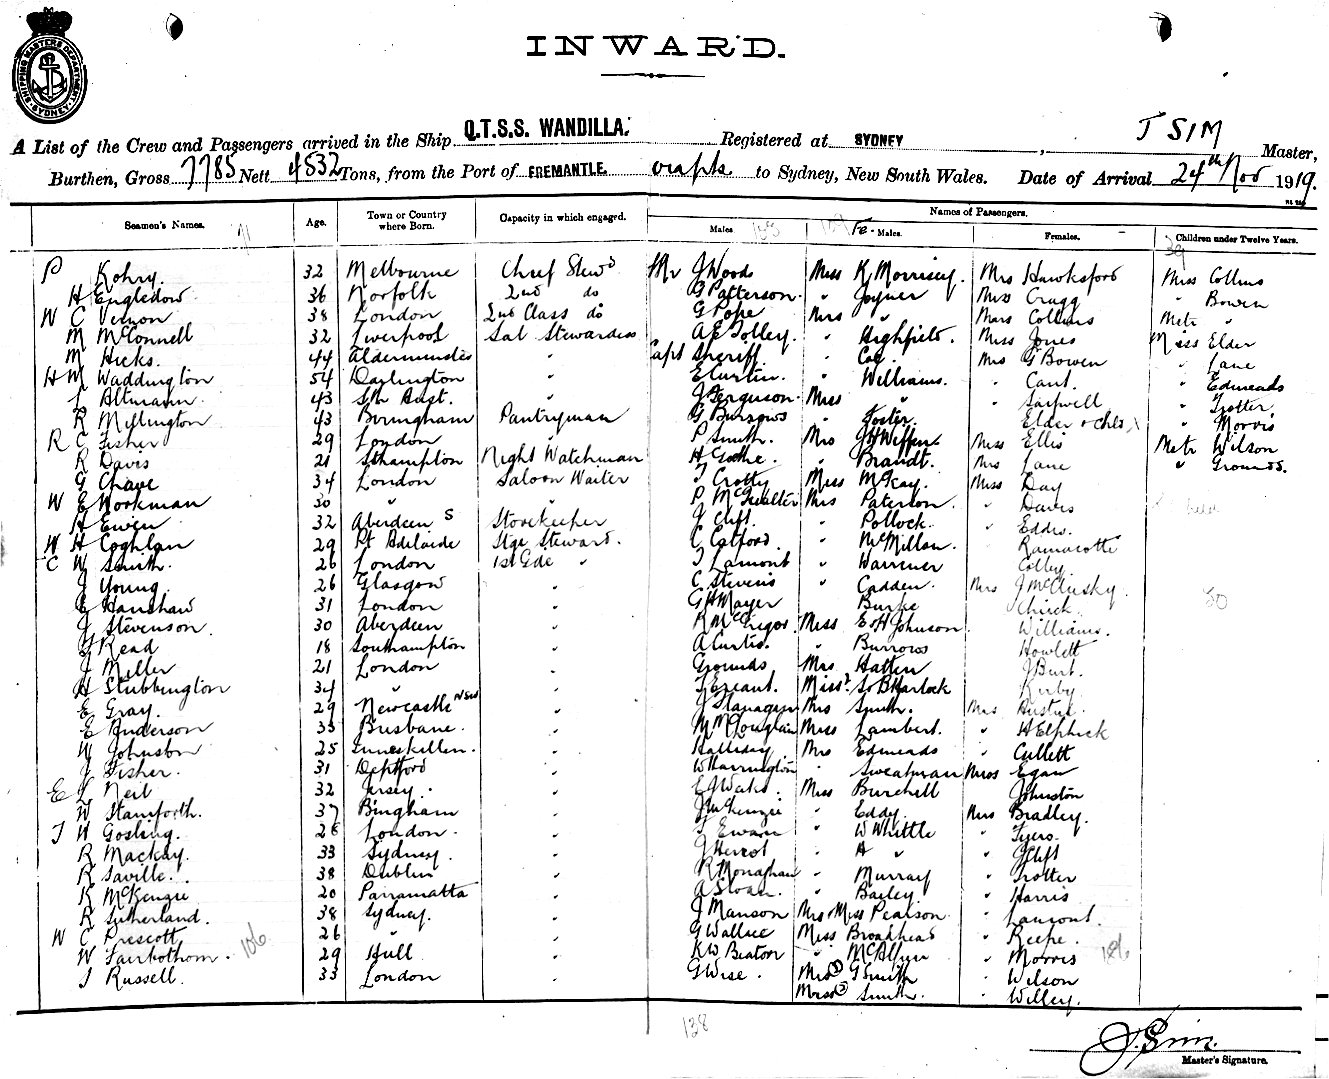 SHIPPING MASTERS DEPARTMENT SYDNEY
INWARD.
A List of the Crew and Passengers arrived in the Ship Q.T.S.S. WANDILLA. Registered at SYDNEY, J SIM Master,
Burthen, Gross 7785 Nett 4532 Tons, from the Port of FREMANTLE. to Sydney, New South Wales. Date of Arrival 24th Nov 1919.
Names of Passengers.
Seamen's Names. Age. Town or Country where Born. Capacity in which engaged. Males. Fe-Males. Females. Children under Twelve Years.
P Kohry 32 Melbourne Chief Stewd Mr J Woods Miss K Morrisey. Mrs Hawksford Miss Collins
H Engledow 36 Norfolk 2nd do B Patterson. " Joyner Miss Cragg " Bowen
W C Vernon 38 London 2nd Class do G Pope Mrs " Mrs Collins Mstr "
M McConnell 32 Liverpool Sal Stewardess A E Tolley. " Highfield. Miss Jones Miss Elder
M Hicks. 44 " Capt Sheriff. " Coe. Mrs G Bowen " Lane
H M Waddington 54 Darlington " E Curtin. " Williams. " Cant. " Edmeads
L Altmann. 43 Sth Aust. " J Ferguson. Miss " " " Trotter
R Millington 43 Birmingham Pantryman G Burrows " Foster. " Elder + chld " Morris
R C Fisher 29 London " P Smith. Mrs J H Wiffen. Miss Ellis Mstr Wilson
R Davis 21 Sthampton Night Watchman H Goethe. " Brandt. Mrs Lane " Grounds.
G Chave 34 London Saloon Waiter T Crotty Miss McKay. Miss Day
W E Wookman 30 " " P McGwalter Mrs Paterson. " Davis
H Ewen 32 Aberdeen S Storekeeper J Clift. " Pollock. " Eddis.
W H Coghlan 29 Pt Adelaide Stge Steward. C Catford. " McMillan. " Ramaciotte
C W Smith. 26 London 1st Gde " T Lamont " Warriner " Colby
J Young. 26 Glasgow " C Stevens " Cadden. Mrs J McClusky.
E Hanshaw 31 London " G H Mayer " Burke " Chick.
J Stevenson. 30 Aberdeen " R McGregor. Miss E & H Johnson. " Williams.
Read 18 Southampton " A Curtis. " Burrows " Howlett
J Miller 21 London " Grounds Mrs Hatten " J Burt.
H Stubbington 34 " " T Ereaut. Miss " Kirby.
E Gray. 29 Newcastle NSW " J Flanagan Mrs Smith. Mrs
E Anderson 33 Brisbane. " M McLouglan Miss Lambert. " H Elphick
W Johnston 25 Inneskillen. " Halliday Mrs Edmeads " Cullett
J Fisher. 31 Deptford " W Harrington " Sweatman Miss Egan
E J Neil 32 Jersey. " E J Watts. Miss Burchell " Johnston
W Stamforth. 37 Bingham " J McKenzie " Eddy. Mrs Bradley.
J W Gosling. 26 London. " T Ewan " W Whittle " Tyers.
R Mackay. 33 Sydney. " J Heriot " A " " J Clift
R Saville. 38 Dublin " R Monaghan " Murray " Trotter
K McKenzie 20 Parramatta " A Sloan. " Bailey. " Harris
R Sutherland. 38 Sydney. " J Manson Mrs & Miss Pearson " Lamont.
W C Prescott 26 " " G Wallace Miss Broadhead " Reepe.
W Fairbothom. 29 Hull " K W Beaton " McAllum " Morris
J Russell. 33 London " G Wise. Mrs G Smith " Wilson
Miss Smith. " Willey.
106
186
138
50
J. Sim.
Master's Signature.